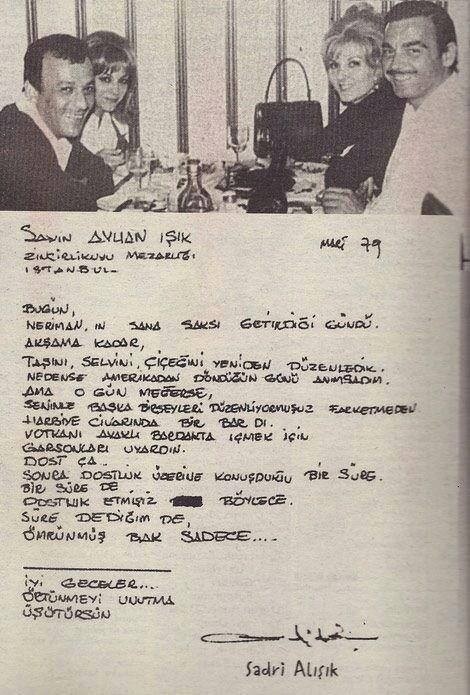 SAYIN AYHAN IŞIK
MART 79
ZİNCİRLİKUYU MEZARLIĞI
İSTANBUL-
BUGÜN,
NERİMAN, IN SANA SAKSI GETİRDİĞİ GÜNDÜ.
AKŞAMA KADAR,
TAŞINI, SELVİNİ, ÇİÇEĞİNİ YENİDEN DÜZENLEDİK.
NEDENSE AMERİKADAN DÖNDÜĞÜN GÜNÜ ANIMSADIM.
AMA O GÜN MEĞERSE,
SENİNLE BAŞKA BİRŞEYLERİ DÜZENLİYORMUŞUZ FARKETMEDEN
HARBİYE CİVARINDA BİR BAR DI.
VOTKANI AYAKLI BARDAKTA İÇMEK İÇİN
GARSONLARI UYARDIN.
DOST ÇA..
SONRA DOSTLUK ÜZERİNE KONUŞDUKTU BİR SÜRE.
BİR SÜRE DE
DOSTLUK ETMİŞİZ BÖYLECE.
SÜRE DEDİĞİM DE,
ÖMRÜNMÜŞ BAK SADECE....
İYİ GECELER...
ÖRTÜNMEYİ UNUTMA
ÜŞÜTÜRSÜN
Sadri Alışık